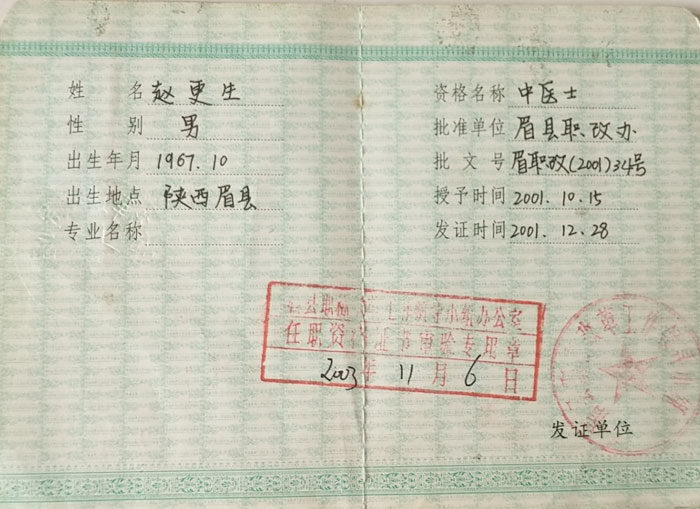 姓 名 赵更生
性 别 男
出生年月 1967.10
出生地点 陕西眉县
专业名称
资格名称 中医士
批准单位 眉县职改办
批 文 号 眉职改(2001)34号
授予时间 2001.10.15
发证时间 2001.12.28
办公室
任职资 审验专用章
2003年 11月 6日
发证单位